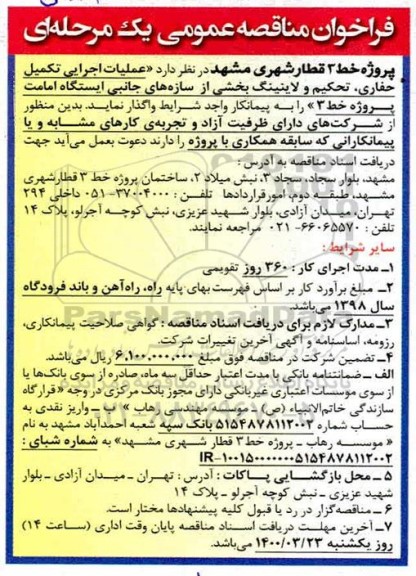 فراخوان مناقصه عمومی یک مرحله‌ای
پروژه خط۳ قطار شهری مشهد در نظر دارد «عملیات اجرایی تکمیل
حفاری، تحکیم و لاینینگ بخشی از سازه‌های جانبی ایستگاه امامت
پروژه خط۳» را به پیمانکار واجد شرایط واگذار نماید. بدین منظور
از شرکت‌های دارای ظرفیت آزاد و تجربه‌ی کارهای مشابه و یا
پیمانکارانی که سابقه همکاری با پروژه را دارند دعوت بعمل می‌آید جهت
دریافت اسناد مناقصه به آدرس:
مشهد، بلوار سجاد، سجاد ۳، نبش میلاد ۲، ساختمان پروژه خط ۳ قطارشهری
مشهد، طبقه دوم، امور قراردادها تلفن: ۳۷۰۰۴۰۰۰-۰۵۱ داخلی ۲۹۴
تهران، میدان آزادی، بلوار شهید عزیزی، نبش کوچه آجرلو، پلاک ۱۴
تلفن: ۶۶۰۶۵۵۷۰-۰۲۱ مراجعه نمایند.
سایر شرایط:
۱ـ مدت اجرای کار: ۳۶۰ روز تقویمی
۲ـ مبلغ برآورد کار بر اساس فهرست بهای پایه راه، راه‌آهن و باند فرودگاه
سال ۱۳۹۸ می‌باشد.
۳ـ مدارک لازم برای دریافت اسناد مناقصه: گواهی صلاحیت پیمانکاری،
رزومه، اساسنامه و آگهی آخرین تغییرات شرکت.
۴ـ تضمین شرکت در مناقصه فوق مبلغ ۶,۱۰۰,۰۰۰,۰۰۰ ریال می‌باشد.
الف ـ ضمانتنامه بانکی با مدت اعتبار حداقل سه ماه، صادره از سوی بانک‌ها یا
از سوی موسسات اعتباری غیربانکی دارای مجوز بانک مرکزی در وجه «قرارگاه
سازندگی خاتم‌الانبیاء (ص) موسسه مهندسی رهاب» یا ب ـ واریز نقدی به
حساب شماره ۵۱۵۴۸۷۸۱۱۲۰۰۲ بانک سپه شعبه احمدآباد مشهد به نام
«موسسه رهاب ـ پروژه خط ۳ قطار شهری مشهد» به شماره شبای:
IR-۱۰۰۱۵۰۰۰۰۰۰۵۱۵۴۸۷۸۱۱۲۰۰۲
۵ ـ محل بازگشایی پاکات: آدرس: تهران ـ میدان آزادی ـ بلوار
شهید عزیزی ـ نبش کوچه آجرلو ـ پلاک ۱۴
۶ ـ مناقصه‌گزار در رد یا قبول کلیه پیشنهادها مختار است.
۷ـ آخرین مهلت دریافت اسناد مناقصه پایان وقت اداری (ساعت ۱۴)
روز یکشنبه ۱۴۰۰/۰۳/۲۳ می‌باشد.
ParsNamadData